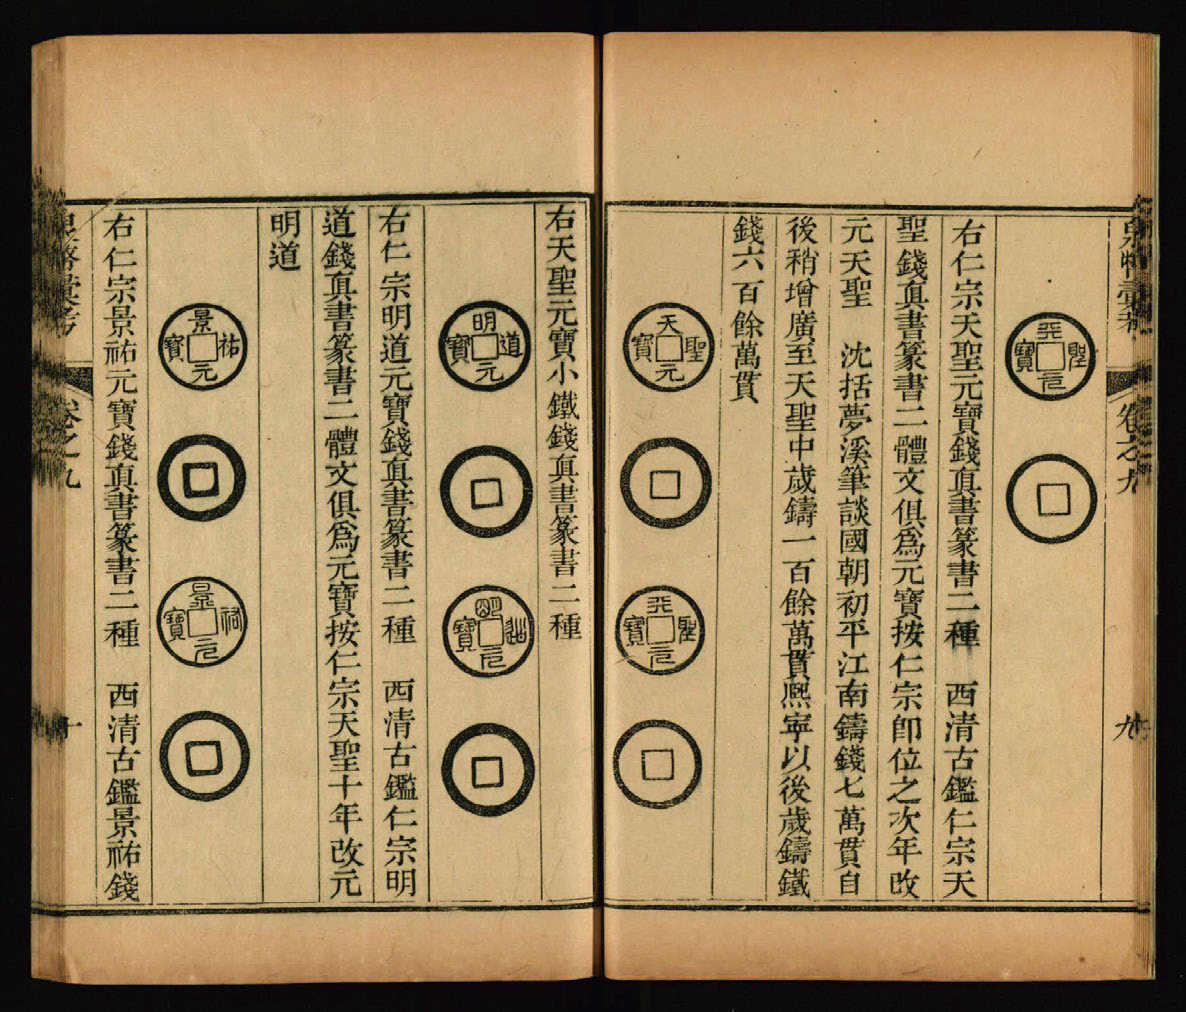 泉幣彙考 卷之九 九
天聖元寶
右仁宗天聖元寶錢眞書篆書二種 西清古鑑仁宗天
聖錢眞書篆書二體文俱爲元寶按仁宗卽位之次年改
元天聖 沈括夢溪筆談國朝初平江南鑄錢七萬貫自
後稍增廣至天聖中歲鑄一百餘萬貫熙寧以後歲鑄鐵
錢六百餘萬貫
天聖元寶
天聖元寶
右天聖元寶小鐵錢眞書篆書二種
明道元寶
明道元寶
右仁宗明道元寶錢眞書篆書二種 西清古鑑仁宗明
道錢眞書篆書二體文俱爲元寶按仁宗天聖十年改元
明道
景祐元寶
景祐元寶
右仁宗景祐元寶錢眞書篆書二種 西清古鑑景祐錢
泉幣彙考 卷之九 十